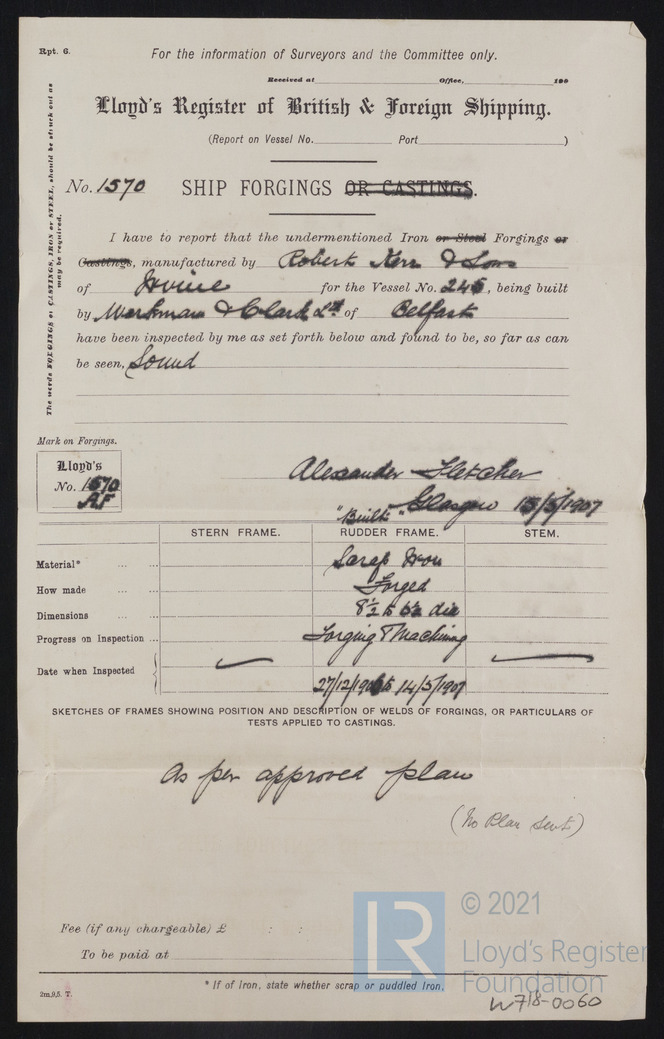 Rpt. 6.
For the information of Surveyors and the Committee only.
Received at Office, 190
Lloyd's Register of British & Foreign Shipping.
(Report on Vessel No. Port )
No. 1570 SHIP FORGINGS OR CASTINGS.
The words FORGINGS or CASTINGS, IRON or STEEL, should be struck out as
may be required.
I have to report that the undermentioned Iron or Steel Forgings or
Castings, manufactured by Robert Kerr & Sons
of Irvine for the Vessel No. 245, being built
by Workman & Clark Ltd of Belfast
have been inspected by me as set forth below and found to be, so far as can
be seen, Sound
Mark on Forgings.
Lloyd's
No. 1570
AF
Alexander Fletcher
Glasgow 15/5/1907
"Built"
STERN FRAME. RUDDER FRAME. STEM.
Material* ... ... Scrap Iron
How made ... ... Forged
Dimensions ... ... 8½ to 6½ dia
Progress on Inspection ... Forging & Machining
Date when Inspected 27/12/1906 to 14/5/1907
SKETCHES OF FRAMES SHOWING POSITION AND DESCRIPTION OF WELDS OF FORGINGS, OR PARTICULARS OF
TESTS APPLIED TO CASTINGS.
As per approved plan
(No Plan Sent)
Fee (if any chargeable) £ : :
To be paid at
* If of Iron, state whether scrap or puddled Iron.
2m,9,5. T.
LR
© 2021
Lloyd's Register
Foundation
W718-0060